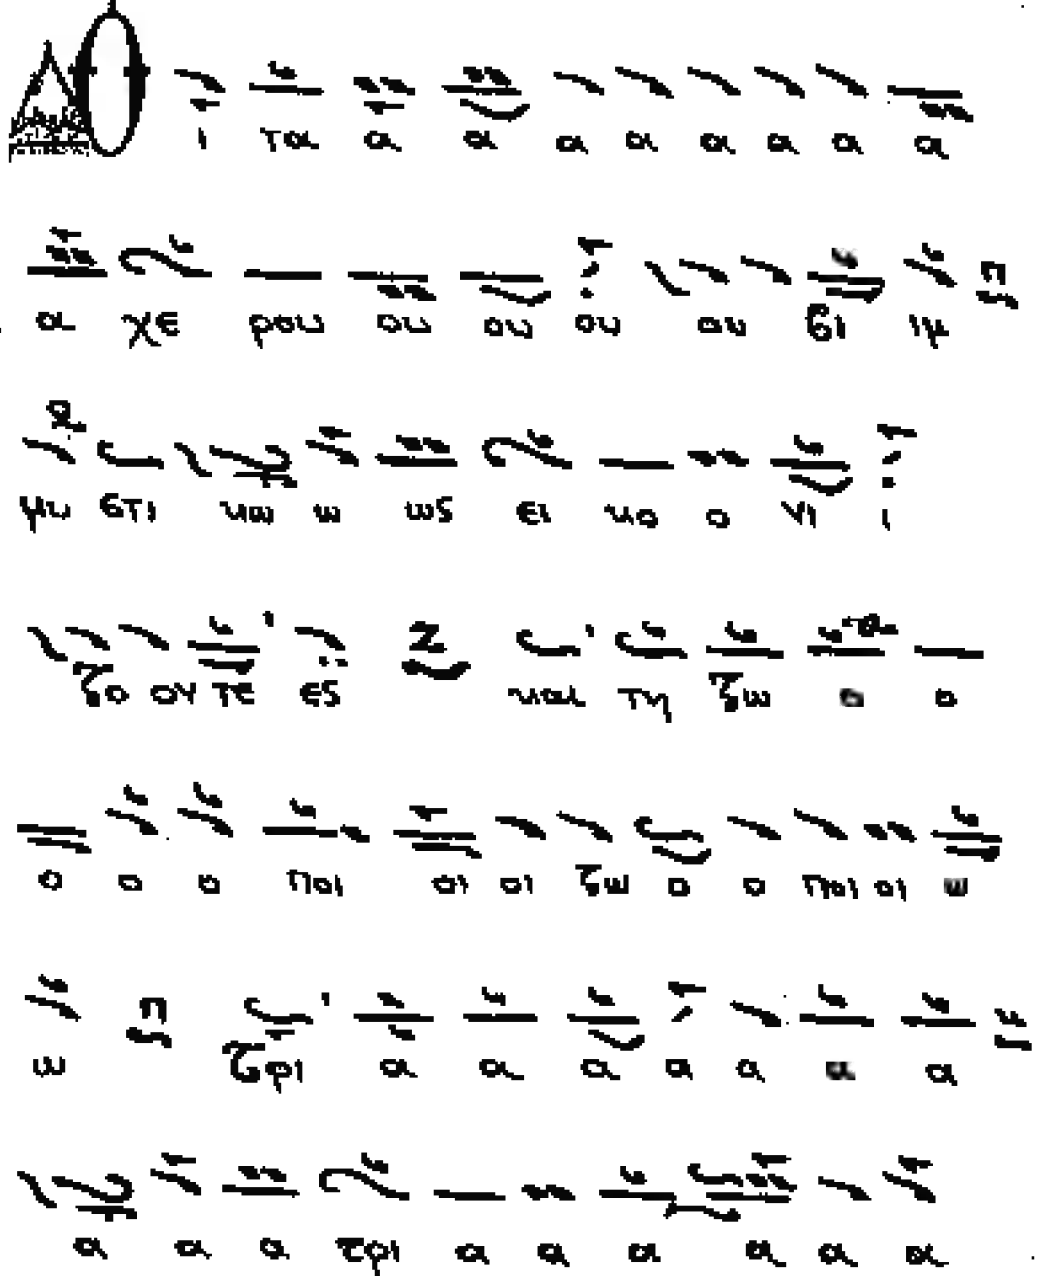 Ο ι τα α α α α α α α α
α χε ρου ου ου ου ου βι ιμ
μυ στι κω ω ως ει κο ο νι ι
ζο ον τε ες και τη ζω ο ο
ο ο ο ποι οι οι ζω ο ο ποι οι ω
ω τρι α α α α α α α
α α α τρι α α α α α α